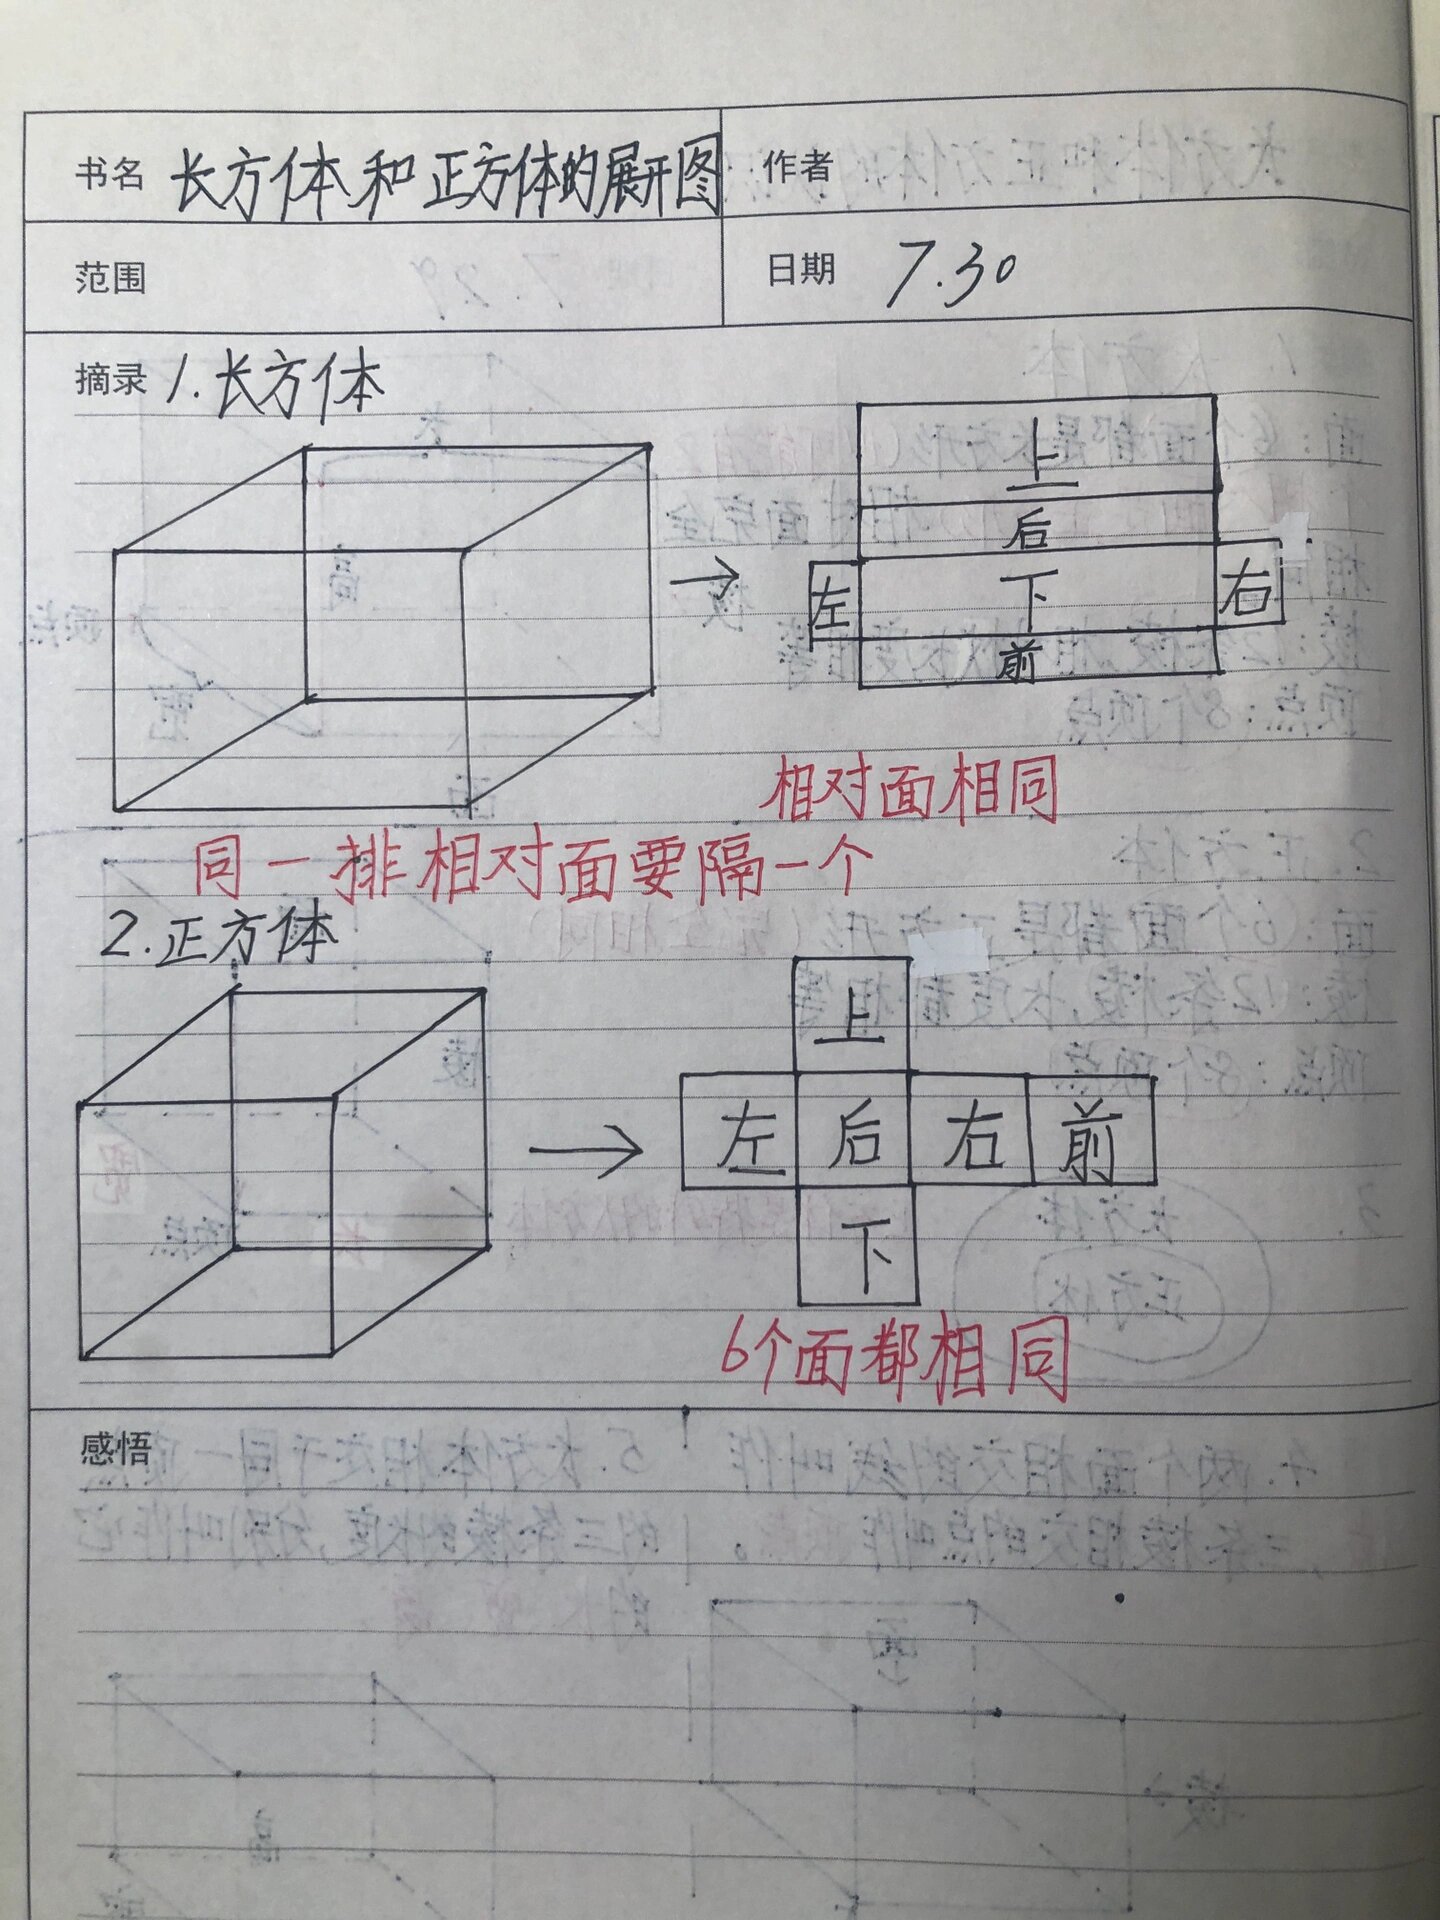 书名 长方体和正方体的展开图 作者
范围 日期 7.30
摘录 1.长方体
上
后
左 下 右
前
相对面相同
同一排相对面要隔一个
2.正方体
上
左 后 右 前
下
6个面都相同
感悟